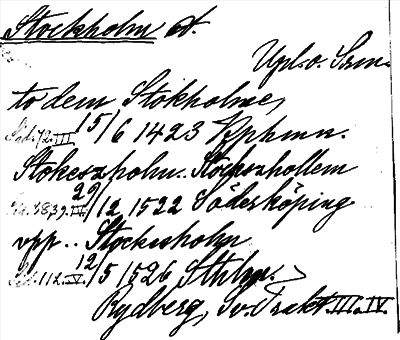 Stockholm st.
Upl. o. Srm.
to dem Stokholme,
Sid. 72. III 15/6 1423 Kphmn.
Stokesholm. Stocksshollem
Sid. 38, 39. IV 29/12 1522 Söderköping
vpp .. Stockesholm
Sid. 112. IV. 12/5 1526 Sthlm.
Rydberg, Sv. Trakt. III o. IV.